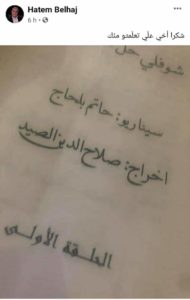 Hatem Belhaj
6 h ·
شكرا أخي علي تعلمتو منك
شوفلي حل
سيناريو: حاتم بلحاج
اخراج: صلاح الدين الصيد
الحلقة الأولى